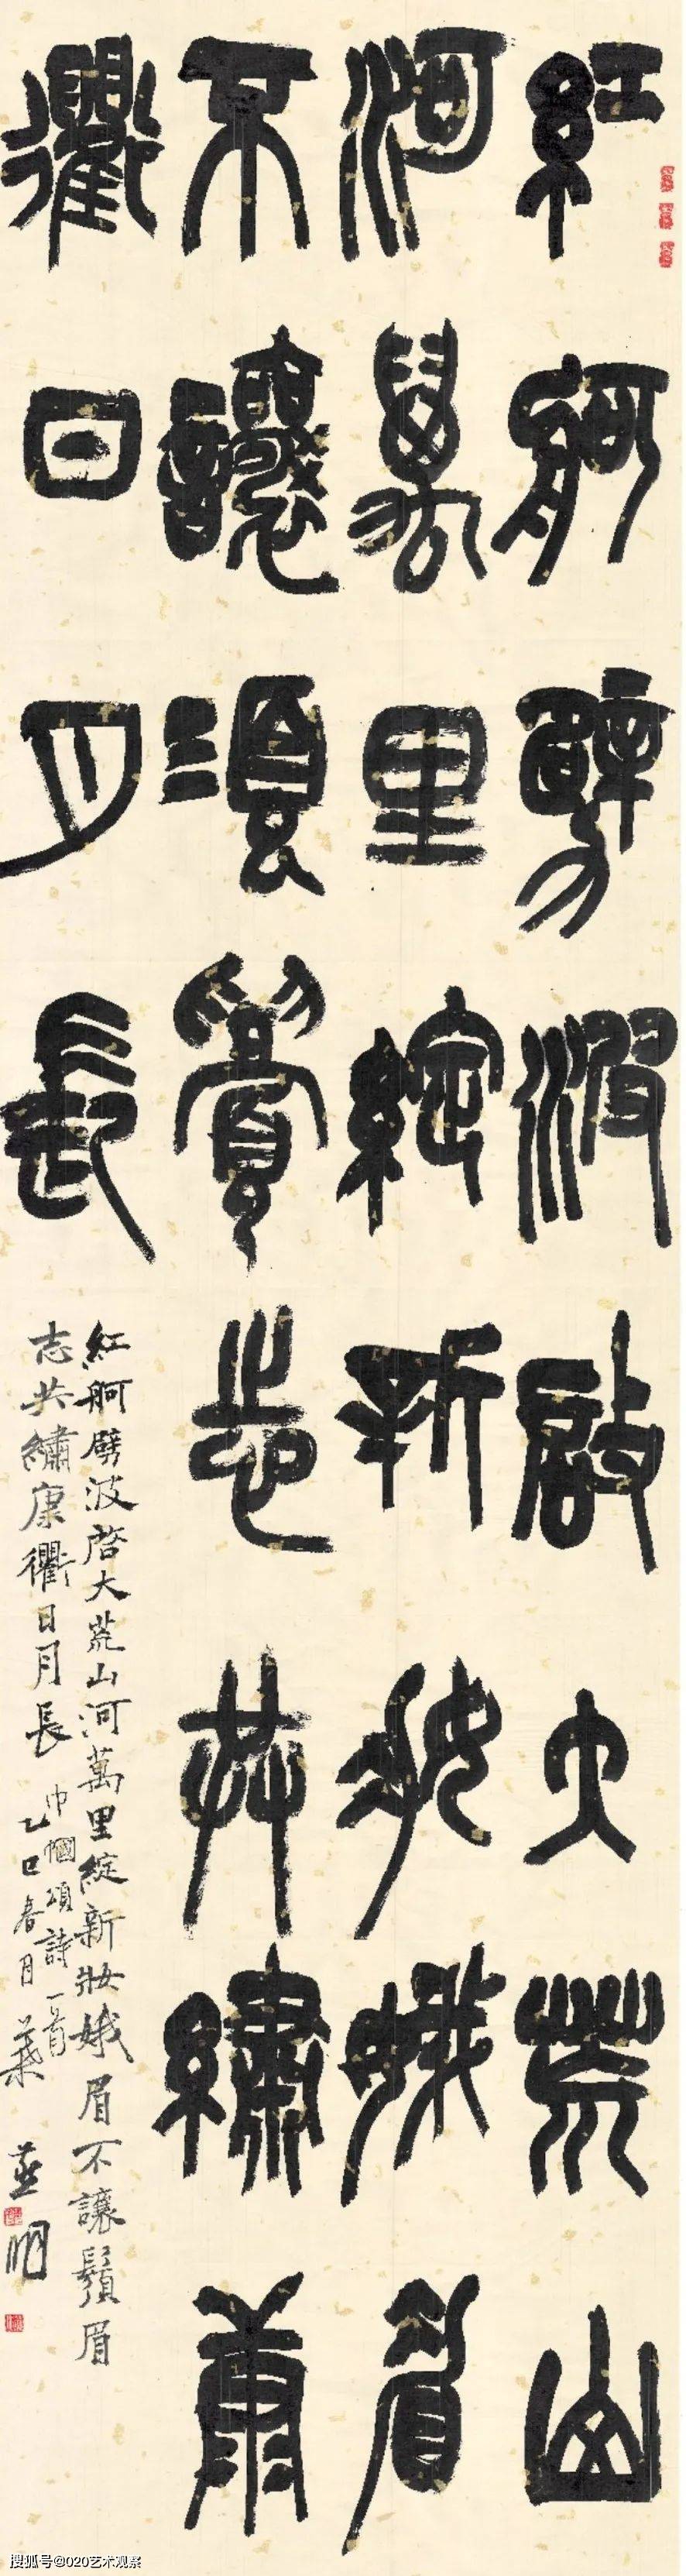 紅舸劈波啟大荒山
河萬里綻新妝娥眉
不讓須眉志共繡康
衢日月長
紅舸劈波啓大荒山河萬里綻新妝娥眉不讓鬚眉
志共繡康衢日月長
巾幗頌詩一首
乙巳春月 葉明
搜狐号@020艺术观察